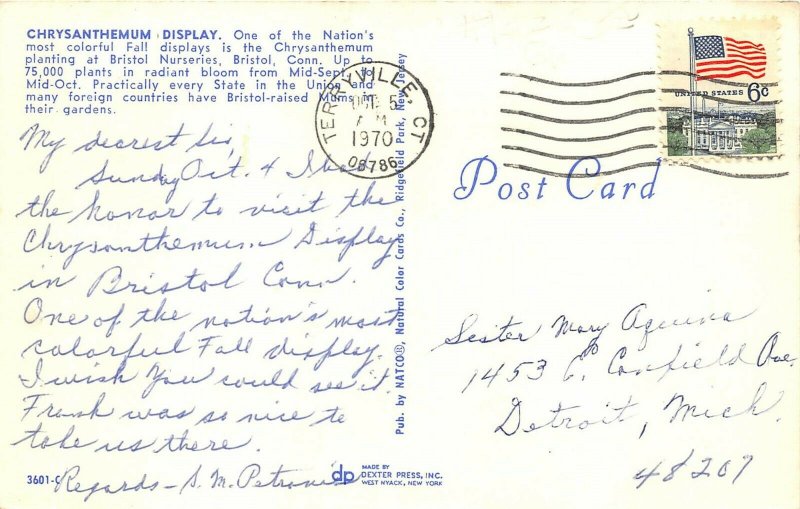 CHRYSANTHEMUM DISPLAY. One of the Nation's
most colorful Fall displays is the Chrysanthemum
planting at Bristol Nurseries, Bristol, Conn. Up to
75,000 plants in radiant bloom from Mid-Sept. to
Mid-Oct. Practically every State in the Union and
many foreign countries have Bristol-raised Mums in
their gardens.
My dearest Sis,
Sunday Oct. 4 I had
the honor to visit the
Chrysanthemum Display
in Bristol Conn.
One of the nation's most
colorful Fall display.
I wish you could see it.
Frank was so nice to
take us there.
Regards - S. M. Petronia
3601-C
dp
MADE BY
DEXTER PRESS, INC.
WEST NYACK, NEW YORK
Pub. by NATCO®, Natural Color Cards Co., Ridgefield Park, New Jersey
TERRYVILLE, CT
OCT 5
AM
1970
06786
UNITED STATES 6c
Post Card
Sister Mary Aquina
1453 E. Canfield Ave.
Detroit, Mich.
48207